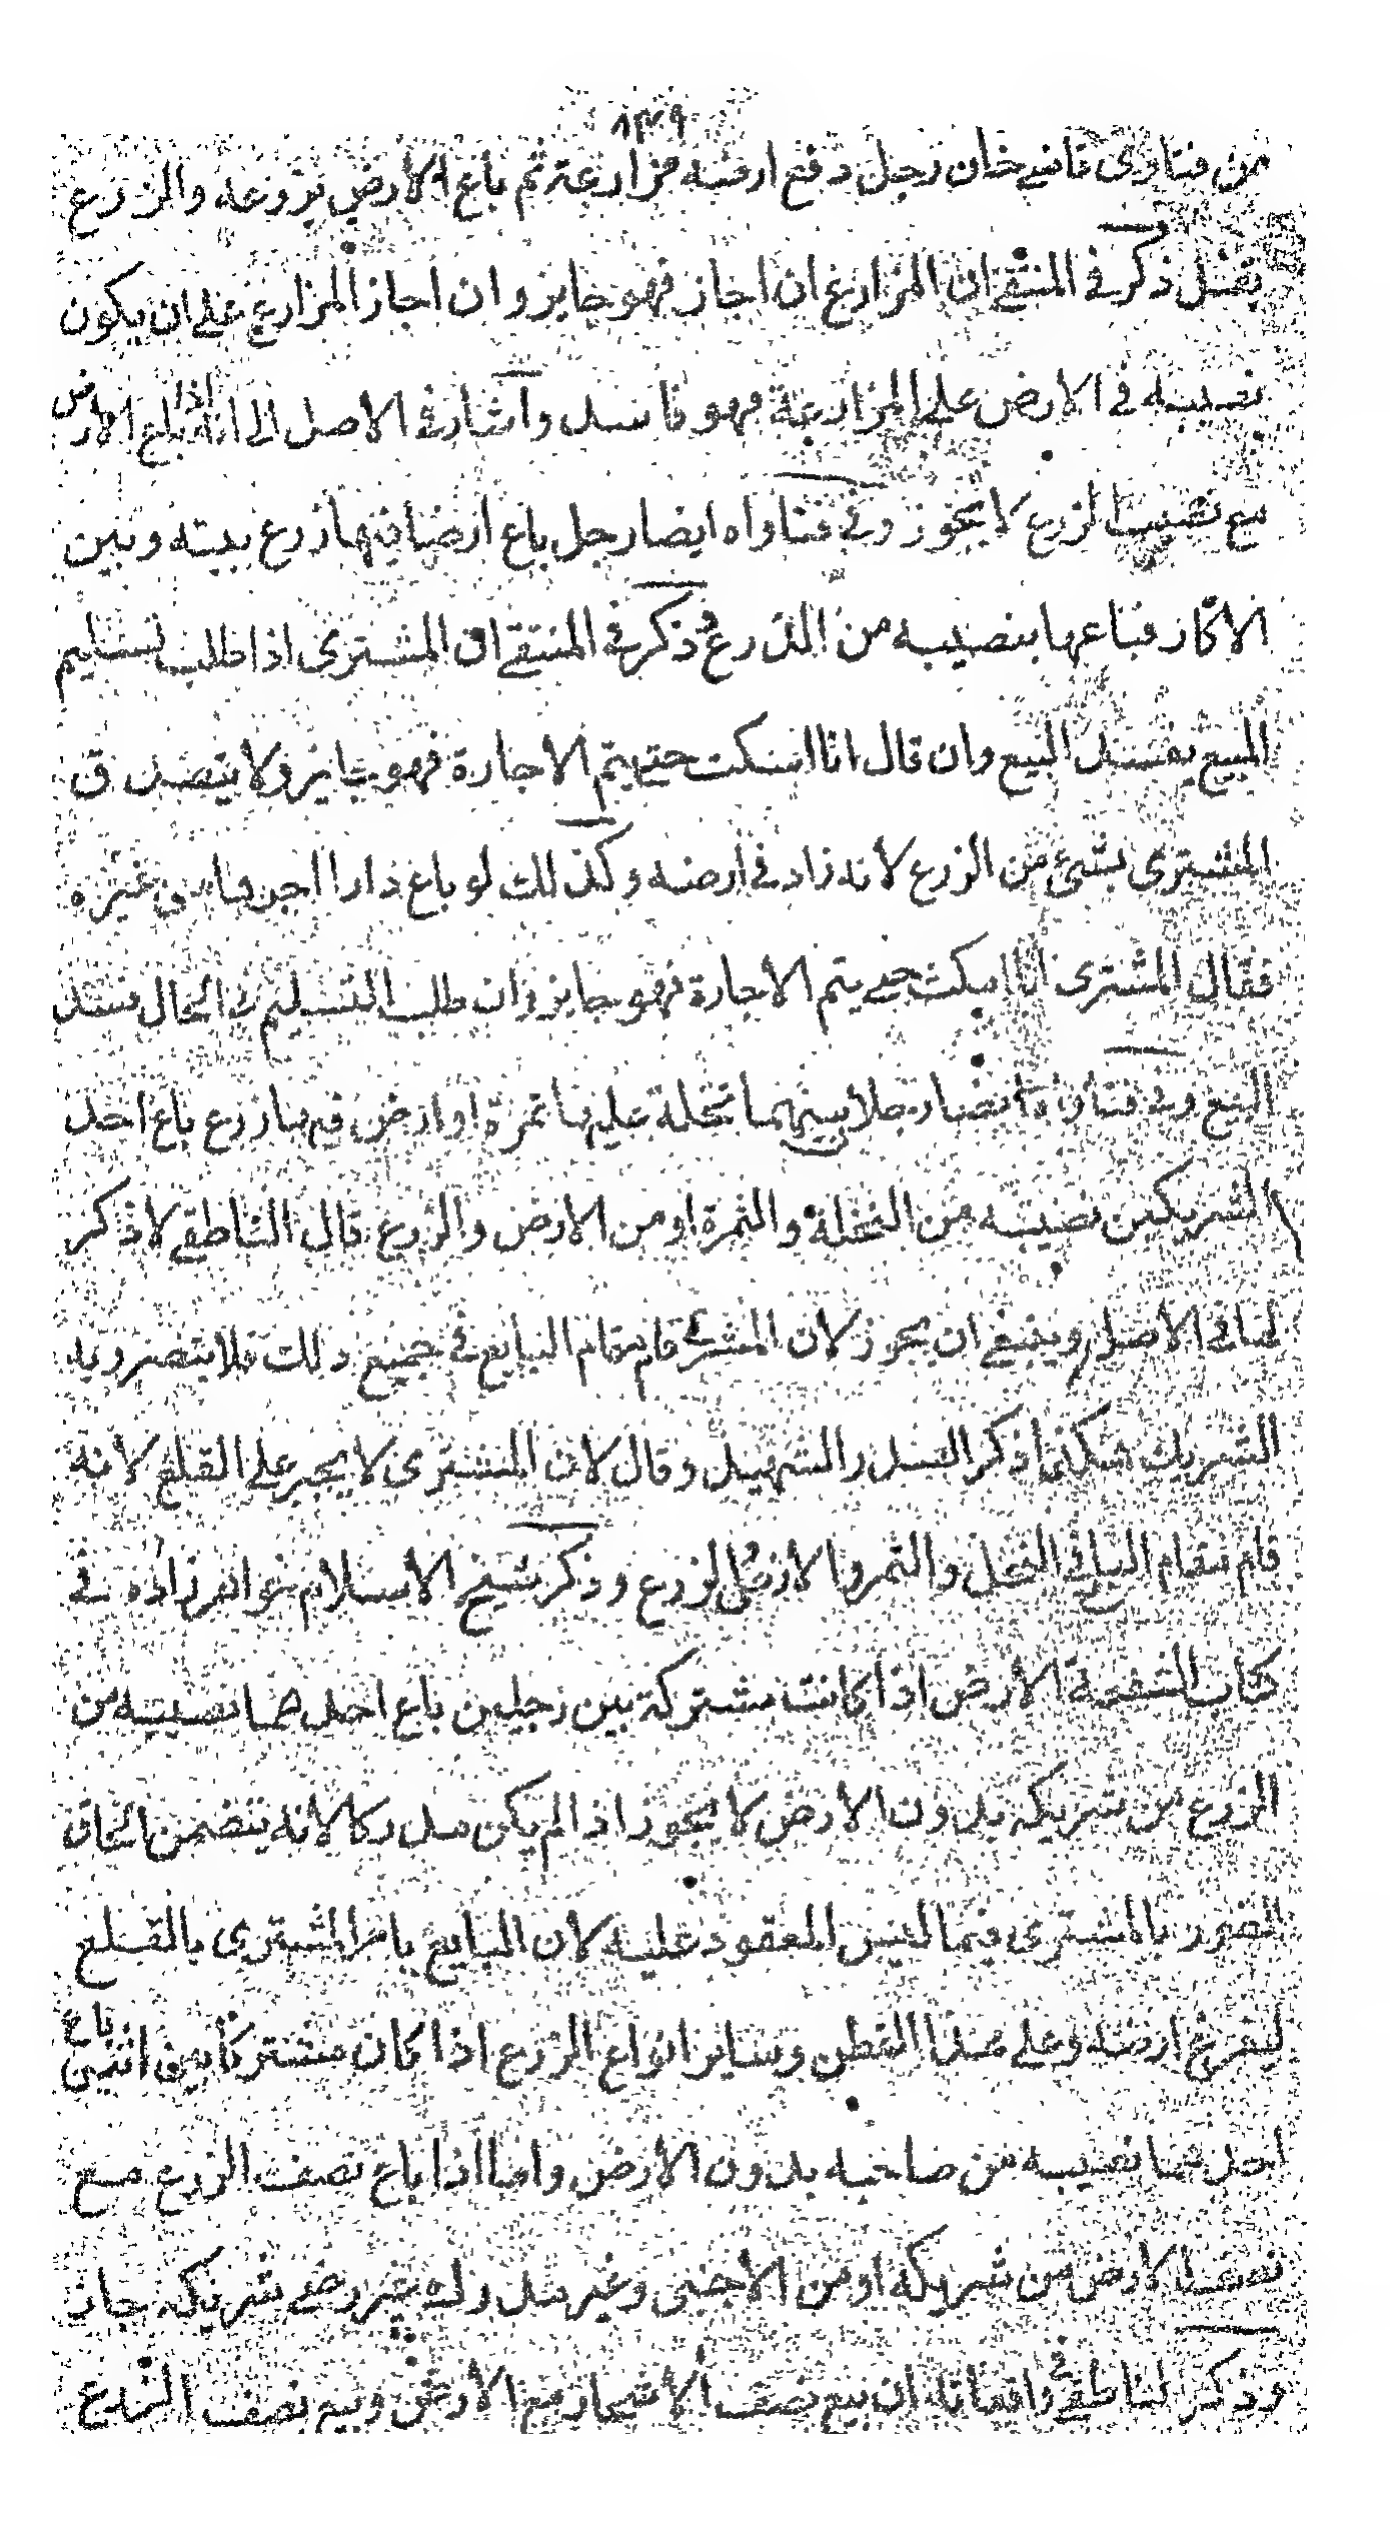 ١٣٩
من فتاوى قاضي خان رجل دفع ارضه مزارعة ثم باع الارض بزروعه والزرع
بقل ذكر في المنتقى ان المزارع ان اجاز فهو جايز وان اجاز المزارع على ان يكون
نصيبه في الارض على المزارعة فهو فاسد واشار في الاصل الى انه اذا باع الارض
مع نصيب الزرع لا يجوز وفي فتاواه ايضا رجل باع ارضا فيها زرع بينه وبين
الاكار فباعها بنصيبه من الزرع ذكر في المنتقى ان المشترى اذا طلب تسليم
المبيع يفسد البيع وان قال انا اسكت حتى يتم الاجارة فهو جايز ولا يتصدق
المشترى بشئ من الزرع لانه زاد في ارضه وكذلك لو باع دارا اجرها من غيره
فقال المشترى انا اسكت حتى يتم الاجارة فهو جايز وان طلب التسليم في الحال فسد
البيع وفي فتاواه ايضا رجلا بينهما نخلة عليها ثمرة او ارض فيها زرع باع احد
الشريكين نصيبه من النخلة والثمرة او من الارض والزرع قال الناطفي لا ذكر
لها في الاصل وينبغي ان يجوز لان المشترى قام مقام البايع في جميع ذلك فلا يتضرر به
الشريك هكذا ذكر الصدر الشهيد وقال لان المشترى لا يجبر على القلع لانه
قام مقام البايع في النخل والثمر والارض والزرع وذكر شيخ الاسلام خواهر زاده في
كتاب الشفعة الارض اذا كانت مشتركة بين رجلين باع احدهما نصيبه من
الزرع من شريكه بدون الارض لا يجوز اذا لم يكن مدركا لانه يتضمن الحاق
الضرر بالمشترى فيما ليس المعقود عليه لان البايع يامر المشترى بالقلع
ليفرغ ارضه وعلى هذا القطن وساير انواع الزرع اذا كان مشتركا بين اثنين باع
احدهما نصيبه من صاحبه بدون الارض واما اذا باع نصف الزرع مع
نصف الارض من شريكه او من الاجنبي وغير مدرك بغير رضى شريكه جاز
وذكر الناطفي في واقعاته ان بيع نصف الاشجار مع الارض وبيع نصف الزرع